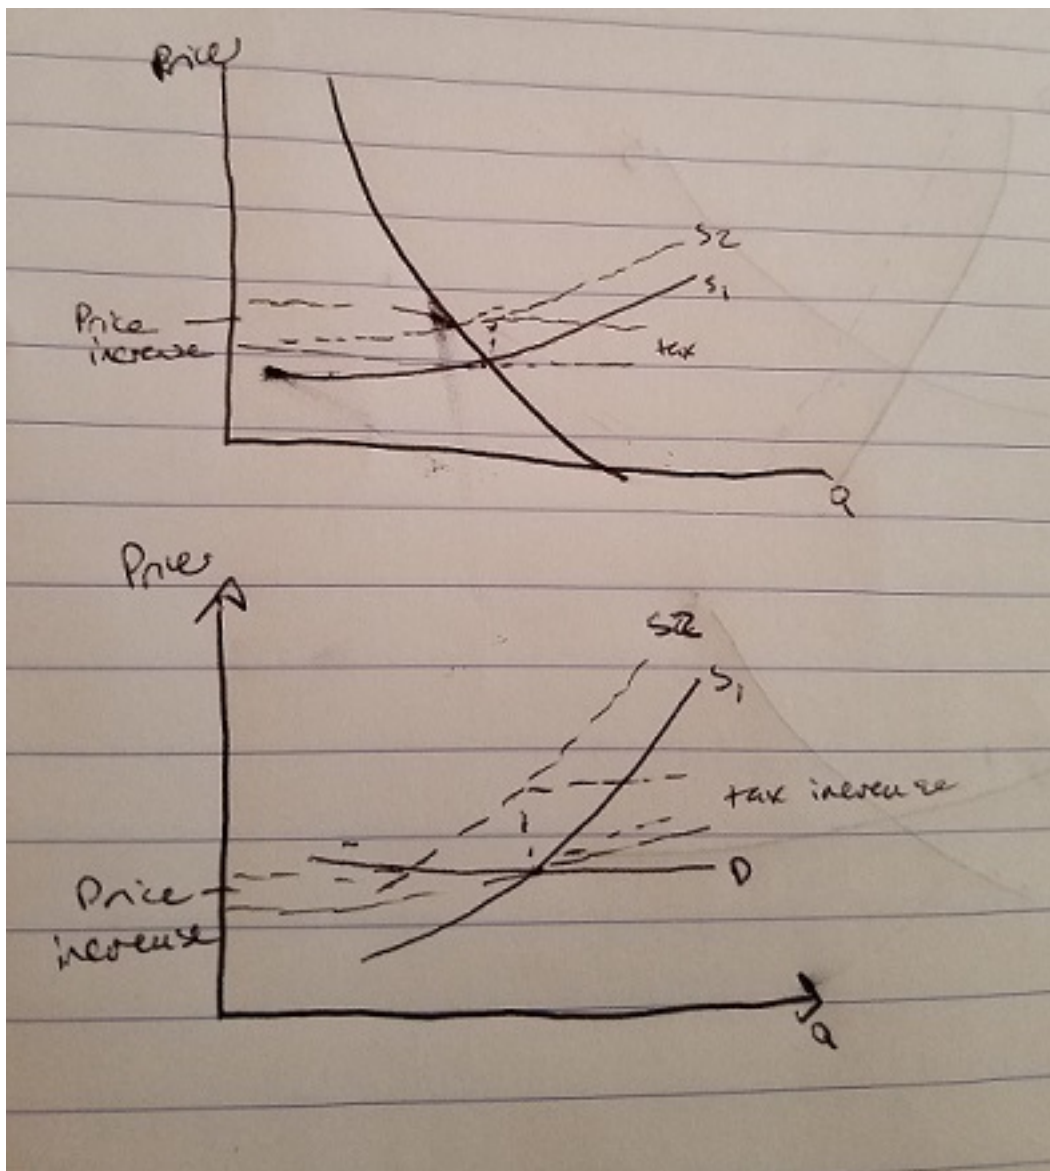 Price
S2
S1
Price
increase
tax
Q
Price
S2
S1
tax increase
D
Price
increase
Q